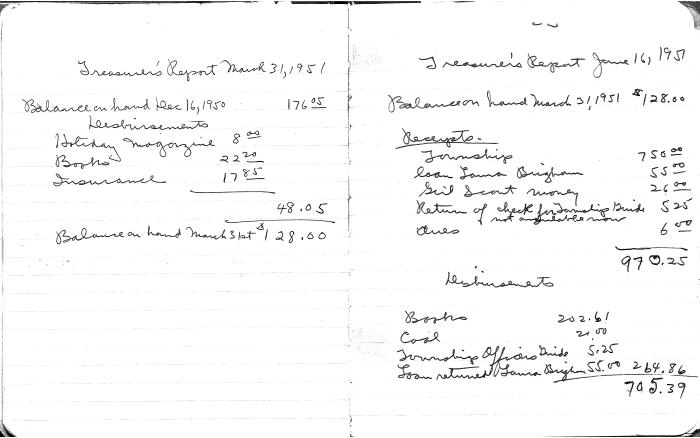 Treasurer's Report March 31, 1951
Balance on hand Dec 16, 1950 176 05
Disbursements
Holiday Magazine 8 00
Books 22 20
Insurance 17 85
48.05
Balance on hand March 31st $128.00
Treasurer's Report June 16, 1951
Balance on hand March 31, 1951 $128.00
Receipts.
Township 750 00
Loan Laura Brigham 55 00
Girl Scout money 26 00
Return of check for Township Guide 5 25
not available now
Dues 6 00
970.25
Disbursements
Books 202.61
Coal 2.00
Township Officers Guide 5.25
Loan returned Laura Brigham 55.00 264.86
705.39